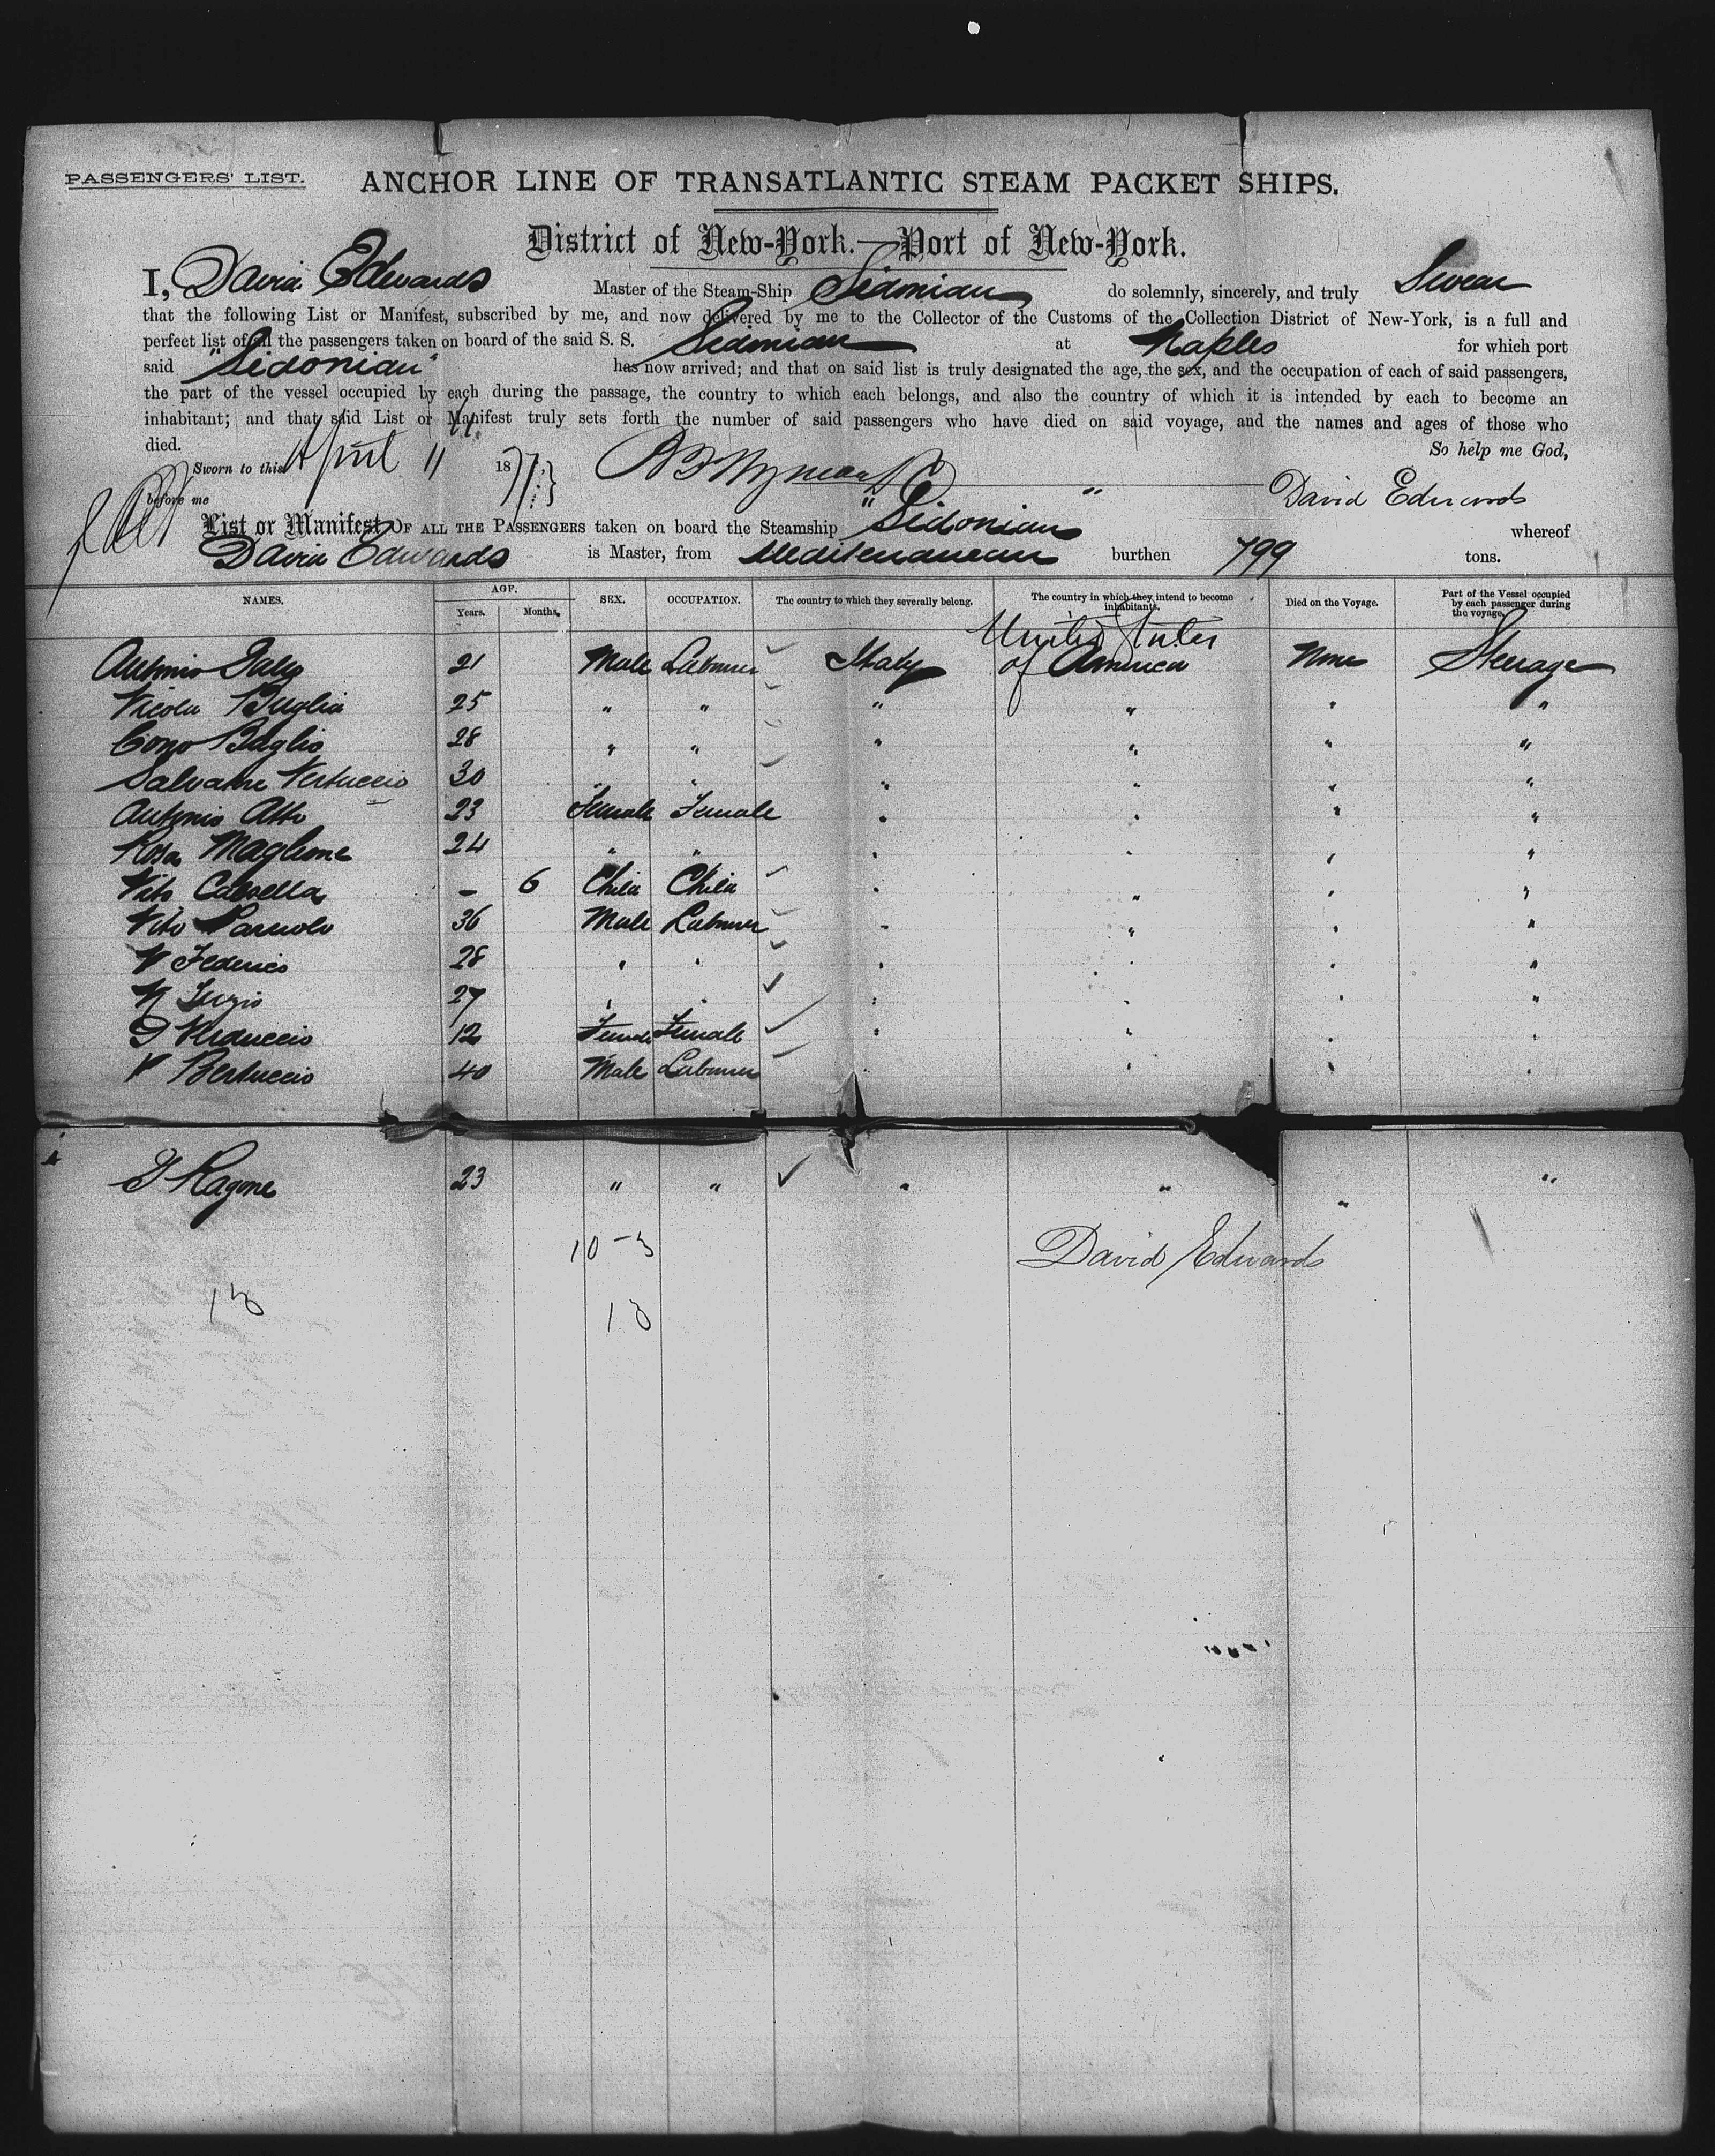 PASSENGERS' LIST. ANCHOR LINE OF TRANSATLANTIC STEAM PACKET SHIPS.
District of New-York.—Port of New-York.
I, David Edwards Master of the Steam-Ship Sidonian do solemnly, sincerely, and truly Swear
that the following List or Manifest, subscribed by me, and now delivered by me to the Collector of the Customs of the Collection District of New-York, is a full and
perfect list of all the passengers taken on board of the said S. S. Sidonian at Naples for which port
said "Sidonian" has now arrived; and that on said list is truly designated the age, the sex, and the occupation of each of said passengers,
the part of the vessel occupied by each during the passage, the country to which each belongs, and also the country of which it is intended by each to become an
inhabitant; and that said List or Manifest truly sets forth the number of said passengers who have died on said voyage, and the names and ages of those who
died. So help me God,
Sworn to this April 11 1877
before me David Edwards
List or Manifest OF ALL THE PASSENGERS taken on board the Steamship "Sidonian whereof
David Edwards is Master, from Mediterranean burthen 799 tons.
NAMES. AGE. Years. Months. SEX. OCCUPATION. The country to which they severally belong. The country in which they intend to become inhabitants. Died on the Voyage. Part of the Vessel occupied by each passenger during the voyage.
United States
Antonio Gallo 21 Male Labourer Italy of America None Steerage
Nicola Buglia 25 " " " " " "
Cono Buglio 28 " " " " " "
Salvatore Vertuccio 30 " " " " " "
Antonio Atto 23 Female Female " " " "
Rosa Maglione 24 " " " " " "
Vito Calvella – 6 Child Child " " " "
Vito 36 Male Labourer " " " "
V Federico 28 " " " " " "
27 " " " " " "
G Verduccio 12 Female Female " " " "
V Bertuccio 40 Male Labourer " " " "
G Ragone 23 " " " " " "
10 - 3 David Edwards
13 13